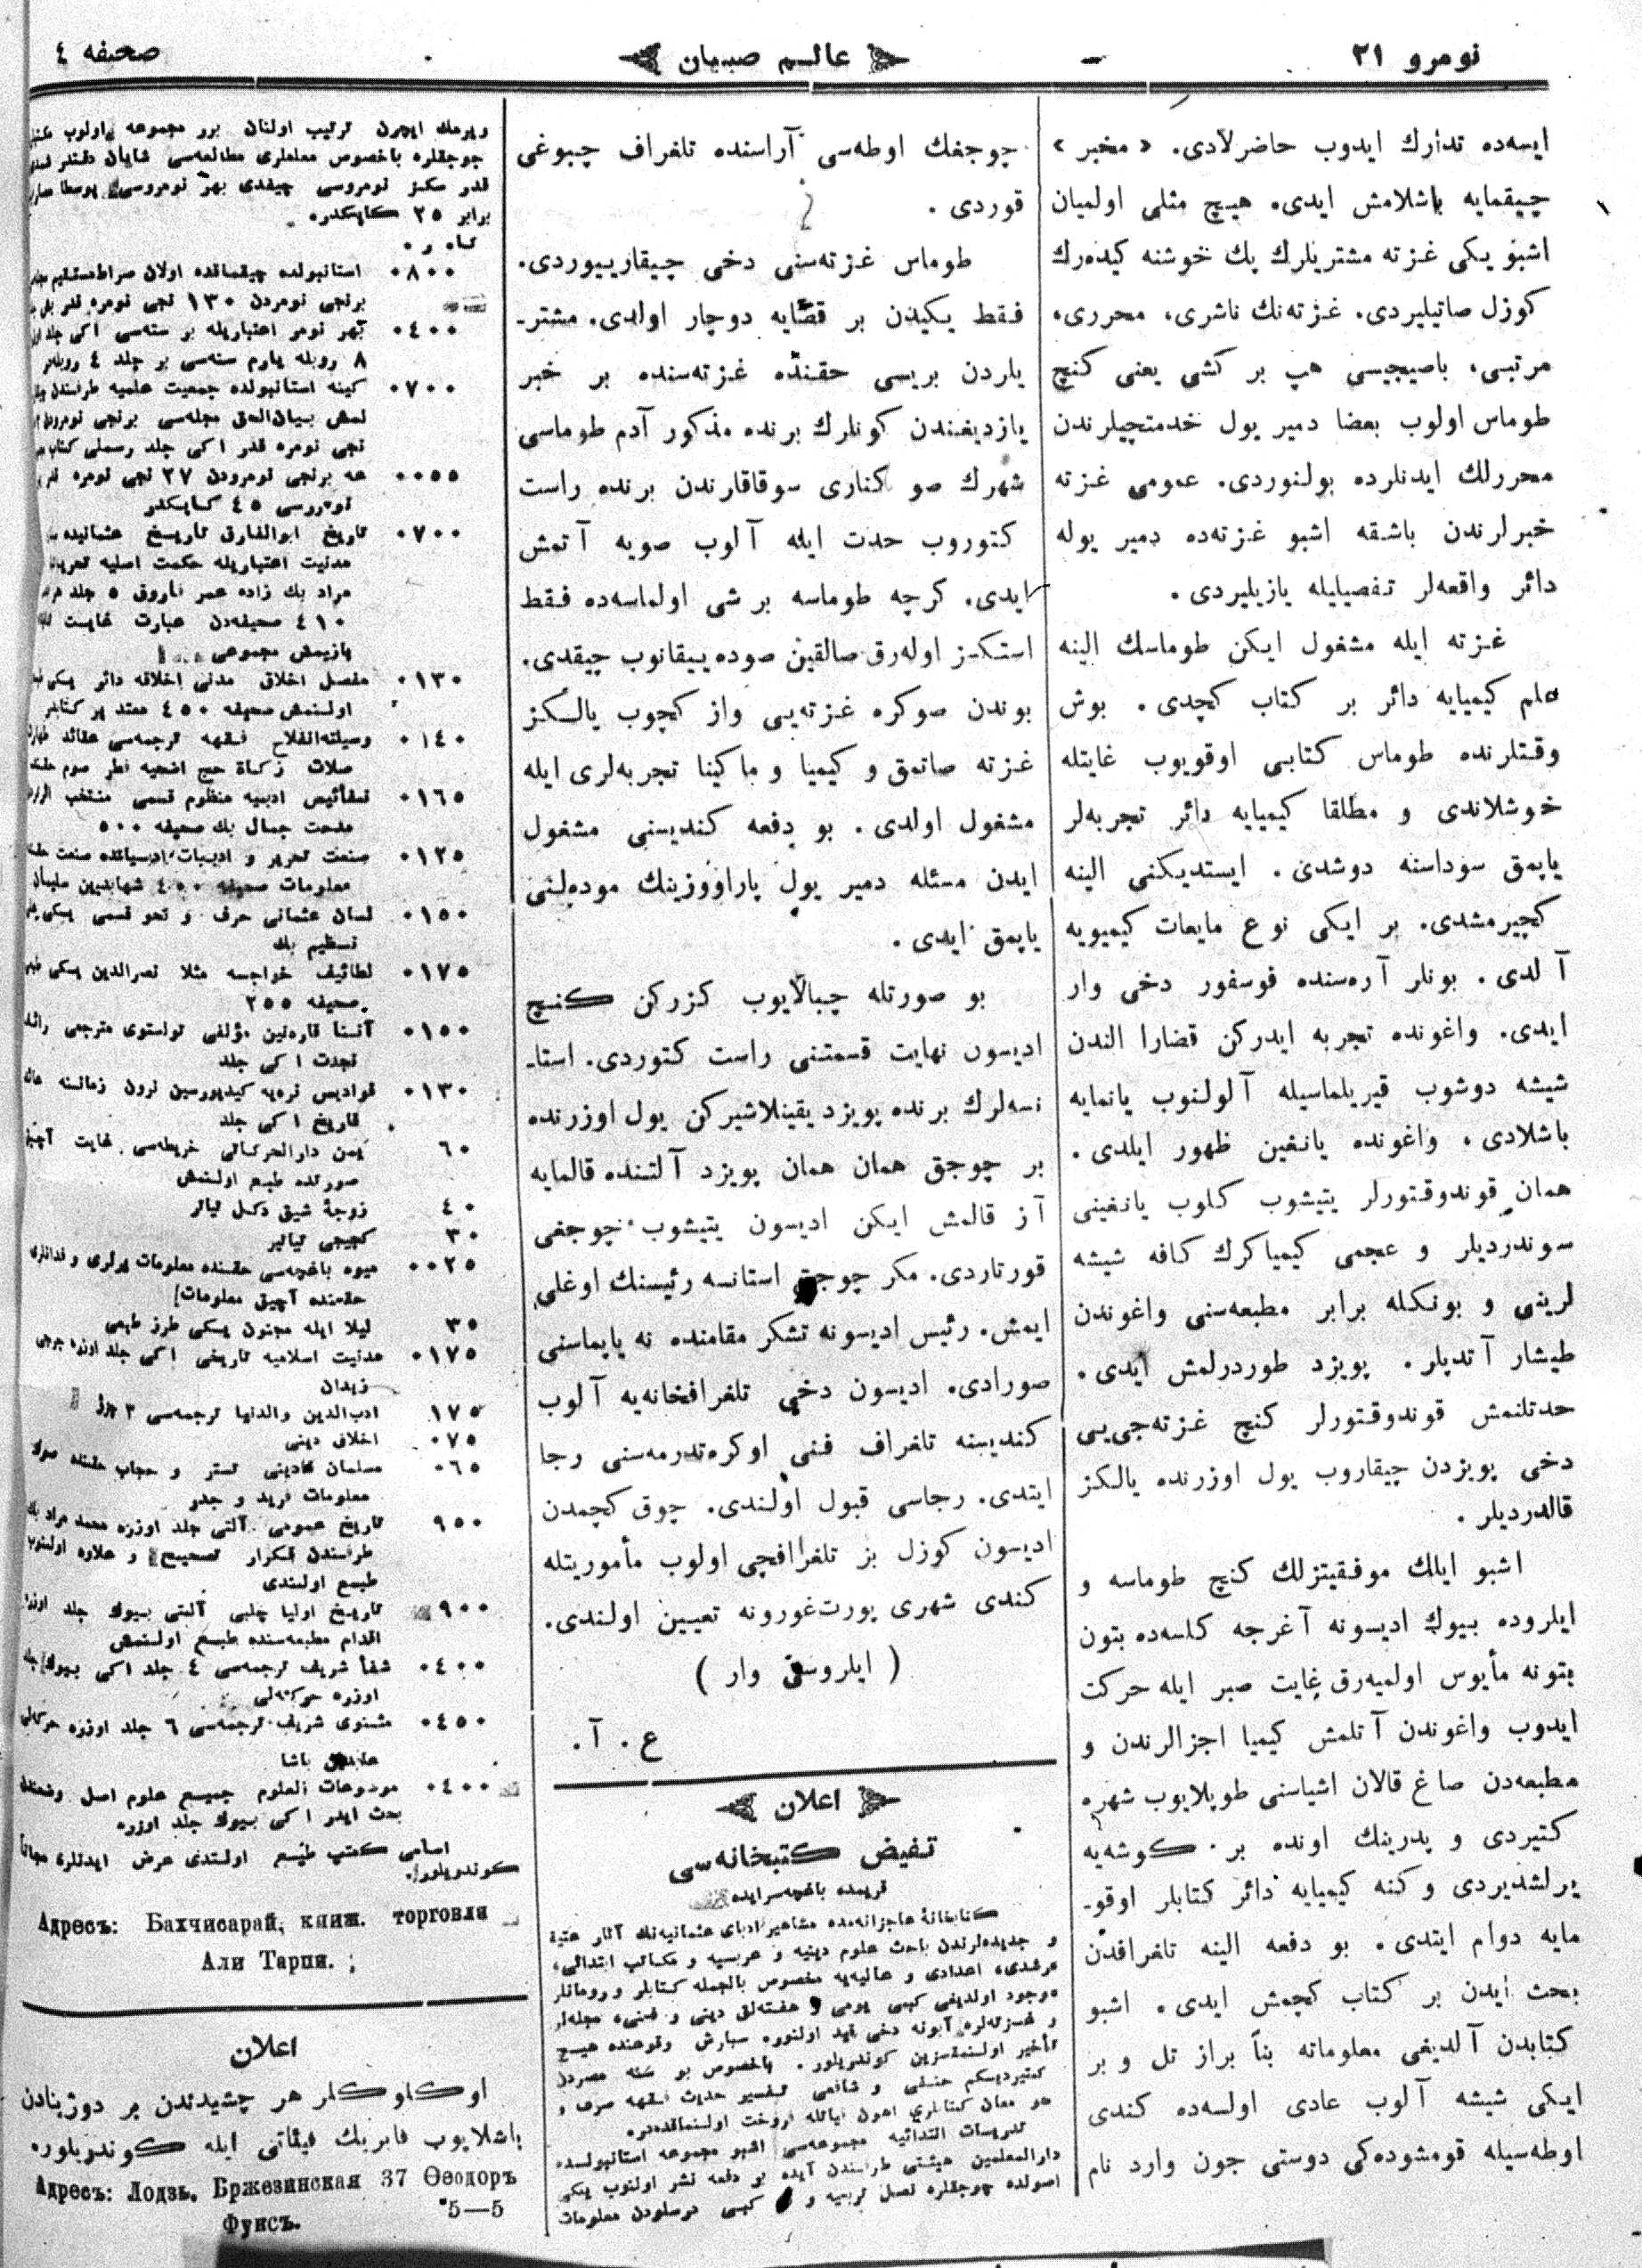 نومرو ٢١
عالم صبیان
صحیفه ٤
ایسه‌ده تدارك ایدوب حاضرلادی. « مخبر »
چیقمایه باشلامش ایدی. هیچ مثلی اولمیان
اشبو یكی غزته مشتریلرك پك خوشنه كیده‌رك
كوزل صاتیلیردی. غزته‌نك ناشری، محرری،
مرتبی، باصیجیسی هپ بر كشی یعنی كنچ
طوماس اولوب بعضا دمیر یول خدمتچیلرندن
محررلك ایدنلرده بولنوردی. عمومی غزته
خبرلرندن باشقه اشبو غزته‌ده دمیر یوله
دائر واقعه‌لر تفصیلیله یازیلیردی.
غزته ایله مشغول ایكن طوماسك الینه
علم كیمیایه دائر بر كتاب كچدی. بوش
وقتلرنده طوماس كتابی اوقویوب غایتله
خوشلاندی و مطلقا كیمیایه دائر تجربه‌لر
یاپمق سوداسنه دوشدی. ایستدیكنی الینه
كچیرمشدی. بر ایكی نوع مایعات كیمیویه
آلدی. بونلر آره‌سنده فوسفور دخی وار
ایدی. واغونده تجربه ایدركن قضارا الندن
شیشه دوشوب قیریلماسیله آلولنوب یانمایه
باشلادی، واغونده یانغین ظهور ایلدی.
همان قوندوقتورلر یتیشوب كلوب یانغینی
سوندردیلر و عجمی كیمیاكرك كافه شیشه
لرینی و بونكله برابر مطبعه‌سنی واغوندن
طیشار آتدیلر. پویزد طوردرلمش ایدی.
حدتلنمش قوندوقتورلر كنچ غزته‌جی‌یی
دخی پویزدن چیقاروب یول اوزرنده یالكز
قالدردیلر.
اشبو ایلك موفقیتزلك كنچ طوماسه و
ایلروده بیوك ادیسونه آغرجه كلسه‌ده بتون
بتونه مأیوس اولمیه‌رق غایت صبر ایله حركت
ایدوب واغوندن آتلمش كیمیا اجزالرندن و
مطبعه‌دن صاغ قالان اشیاسنی طوپلایوب شهره
كتیردی و پدرینك اونده بر كوشه‌یه
یرلشدیردی و كنه كیمیایه دائر كتابلر اوقو-
مایه دوام ایتدی. بو دفعه الینه تلغرافدن
بحث ایدن بر كتاب كچمش ایدی. اشبو
كتابدن آلدیغی معلوماته بنأ براز تل و بر
ایكی شیشه آلوب عادی اولسه‌ده كندی
اوطه‌سیله قومشوده‌كی دوستی جون وارد نام
چوجغك اوطه‌سی آراسنده تلغراف چبوغی
قوردی.
طوماس غزته‌سنی دخی چیقارییوردی.
فقط یكیدن بر قضایه دوچار اولدی. مشتر-
یلردن بریسی حقنده غزته‌سنده بر خبر
یازدیغندن كونلرك برنده مذكور آدم طوماسی
شهرك صو كناری سوقاقلرندن برنده راست
كتوروب حدت ایله آلوب صویه آتمش
ایدی. كرچه طوماسه بر شی اولماسه‌ده فقط
استكسز اوله‌رق صالقین صوده ییقانوب چیقدی.
بوندن صوكره غزته‌یی واز كچوب یالكز
غزته صاتمق و كیمیا و ماكینا تجربه‌لری ایله
مشغول اولدی. بو دفعه كندیسنی مشغول
ایدن مسئله دمیر یول پاراووزینك موده‌لنی
یاپمق ایدی.
بو صورتله چبالایوب كزركن كنچ
ادیسون نهایت قسمتنی راست كتوردی. استا-
نسه‌لرك برنده پویزد یقینلاشیركن یول اوزرنده
بر چوجق همان همان پویزد آلتنده قالمایه
آز قالمش ایكن ادیسون یتیشوب چوجغی
قورتاردی. مكر چوجق استانسه رئیسنك اوغلی
ایمش. رئیس ادیسونه تشكر مقامنده نه یاپماسنی
صورادی. ادیسون دخی تلغرافخانه‌یه آلوب
كندیسنه تلغراف فنی اوكره‌تدرمه‌سنی رجا
ایتدی. رجاسی قبول اولندی. چوق كچمدن
ادیسون كوزل بر تلغرافچی اولوب مأموریتله
كندی شهری پورت‌غورونه تعیین اولندی.
( ایلروسی وار )
ع. آ.
اعلان
تفیض كتبخانه‌سی
قریمده باغچه‌سرایده
كتابخانهٔ عاجزانه‌مده مشاهیر ادبای عثمانیه‌نك آثار عتیقه
و جدیده‌لرندن باحث علوم دینیه و عربیه و مكاتب ابتدائی،
مرشدی، اعدادی و عالیه‌یه مخصوص بالجمله كتابلر و رومانلر
موجود اولدیغی كبی یومی و هفته‌لق دینی و فنی، مجله‌لر
و غزته‌لره آبونه دخی قید اولنور. سپارش وقوعنده هیچ
تأخیر اولنمقسزین كوندریلور. باخصوص بو سنه مصردن
كتیردیكم حنفی و شافعی تفسیر حدیث فقهه صرف و
تدریسات ابتدائیه مجموعه‌سی اشبو مجموعه استانبولده
دارالمعلمین هیئتی طرفندن آیده بر دفعه نشر اولنوب یكی
اصولده چوجقلره تربیه و كبی درسلردن معلومات
ویرمك ایچون ترتیب اولنان بر مجموعه اولوب
چوجقلره باخصوص معلملری مطالعه‌سی شایان دقتدر
قدر سكز نومروسی چیقدی بهر نومروسی پوسطا
برابر ٢٥ كاپكدر.
٠٨٠٠ استانبولده چیقماقده اولان صراط‌مستقیم
برنجی نومردن ١٣٠ نجی نومره قدر
٠٤٠٠ بهر نومر اعتباریله بر سنه‌سی اكی جلد
٨ روبله یارم سنه‌سی بر جلد ٤ روبله‌در
٠٧٠٠ كینه استانبولده جمعیت علمیه طرفندن
بیان‌الحق مجله‌سی برنجی نومرودن
نجی نومره قدر اكی جلد رسملی كتاب
٠٠٥٥ برنجی نومرودن ٢٧ نجی نومره
نومروسی ٤٥ كاپكدر
٠٧٠٠ تاریخ ابوالفاروق تاریخ عثمانیده
مدنیت اعتباریله حكمت اصلیه
مراد بك زاده عمر فاروق ٥ جلد
٤١٠ صحیفه‌دن عبارت غایت
یازیمش مجموعی
٠١٣٠ مفصل اخلاق مدنی اخلاقه دائر یكی
اولنمش صحیفه ٤٥٠ معتد بر كتابدر
٠١٤٠ وسیلةالفلاح فقهه ترجمه‌سی عقائد
صلات زكاة حج اضحیه فطر صوم
٠١٦٥ نفائیس ادبیه منظوم قسمی منتخب
مدحت جمال بك صحیفه ٥٠٠
٠١٢٥ صنعت تحریر و ادبیات
معلومات صحیفه ٤٥٠ شهابدین سلیمان
٠١٥٠ لسان عثمانی حرف و نحو قسمی یكی
تسظیم بك
٠١٧٥ لطائیف خواجه ملا نصرالدین یكی
صحیفه ٢٥٥
٠١٥٠ آننا قاره‌نین مؤلفی تولستوی مترجمی
نجدت اكی جلد
٠١٣٠ قوادیس نره‌یه كیدیورسین نرون زمانینه
تاریخ اكی جلد
٦٠ یمن دارالحركاتی خریطه‌سی غایت آچیق
صورتده طبع اولنمش
٤٠ زوجهٔ شیق دكل تیاتر
٣٠ كچیجی تیاتر
٠٠٢٥ میوه باغچه‌سی حقنده معلومات
حقنده آچیق معلومات
٣٥ لیلا ایله مجنون یكی طرز طبعی
٠١٧٥ مدنیت اسلامیه تاریخی اكی جلد اوزره جرجی
زیدان
١٧٥ ادب‌الدین والدنیا ترجمه‌سی ٣
٠٧٥ اخلاق دینی
٠٦٥ مسلمان قادینی تستر و حجاب حقنده
معلومات فرید و جدو
٩٥٠ تاریخ عمومی آلتی جلد اوزره محمد مراد بك
طرفندن تكرار تصحیح و علاوه اولنوب
طبع اولندی
٩٠٠ تاریخ اولیا چلبی آلتی بیوك جلد
اقدام مطبعه‌سنده طبع اولنمش
٠٤٠٠ شفأ شریف ترجمه‌سی ٤ جلد اكی بیوك
اوزره حركه‌لی
٠٤٥٠ مثنوی شریف ترجمه‌سی ٦ جلد اوزره
عابدین باشا
٠٤٠٠ موضوعات العلوم جمیع علوم اصل
بحث ایدر اكی بیوك جلد اوزره
اسامی كتب طبع اولندی عرض ایدنلره مجاناً
كوندریلور.
Адресъ: Бахчисарай, книж. торговля
Али Тарпи.
اعلان
هر چشیدندن بر دوزینادن
باشلایوب فابریك فیئاتی ایله كوندریلور.
Адресъ: Лодзь. Бржезинская 37 Ѳеодоръ
Фуксъ.
5—5